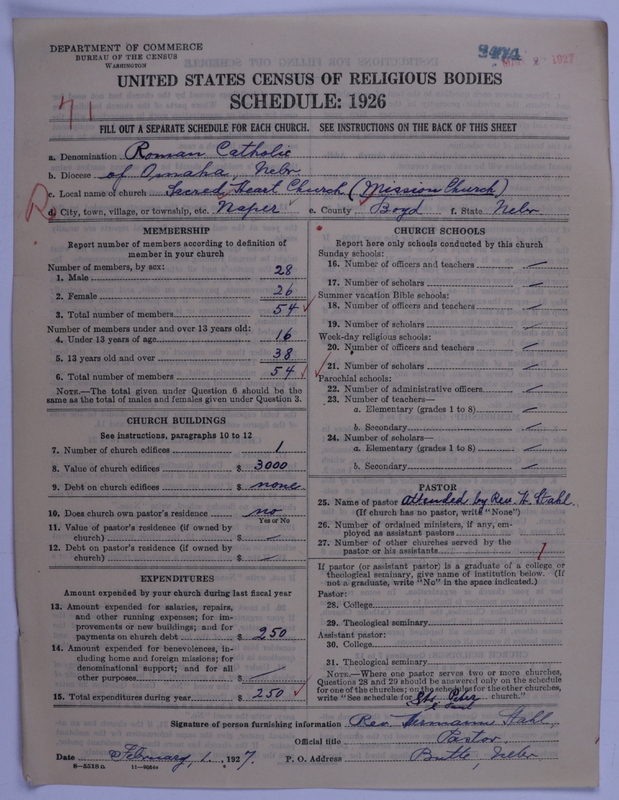 DEPARTMENT OF COMMERCE
BUREAU OF THE CENSUS
WASHINGTON
2 1927
UNITED STATES CENSUS OF RELIGIOUS BODIES
SCHEDULE: 1926
71
FILL OUT A SEPARATE SCHEDULE FOR EACH CHURCH. SEE INSTRUCTIONS ON THE BACK OF THIS SHEET
a. Denomination Roman Catholic
b. Diocese of Omaha, Nebr
c. Local name of church Sacred Heart Church (Mission Church)
d. City, town, village, or township, etc. Naper e. County Boyd f. State Nebr
MEMBERSHIP
Report number of members according to definition of
member in your church
Number of members, by sex:
1. Male 28
2. Female 26
3. Total number of members 54
Number of members under and over 13 years old:
4. Under 13 years of age 16
5. 13 years old and over 38
6. Total number of members 54
NOTE.—The total given under Question 6 should be
same as the total of males and females given under Question 3.
CHURCH BUILDINGS
See instructions, paragraphs 10 to 12
7. Number of church edifices 1
8. Value of church edifices $ 3000
9. Debt on church edifices $ none
10. Does church own pastor's residence no
Yes or No
11. Value of pastor's residence (if owned by
church) $ —
12. Debt on pastor's residence (if owned by
church) $ —
EXPENDITURES
Amount expended by your church during last fiscal year
13. Amount expended for salaries, repairs,
and other running expenses; for im-
provements or new buildings; and for
payments on church debt $ 250
14. Amount expended for benevolences, in-
cluding home and foreign missions; for
denominational support; and for all
other purposes $ —
15. Total expenditures during year $ 250
CHURCH SCHOOLS
Report here only schools conducted by this church
Sunday schools:
16. Number of officers and teachers —
17. Number of scholars —
Summer vacation Bible schools:
18. Number of officers and teachers —
19. Number of scholars —
Week-day religious schools:
20. Number of officers and teachers —
21. Number of scholars —
Parochial schools:
22. Number of administrative officers —
23. Number of teachers—
a. Elementary (grades 1 to 8) —
b. Secondary —
24. Number of scholars—
a. Elementary (grades 1 to 8) —
b. Secondary —
PASTOR
25. Name of pastor attended by Rev. H. Stahl
(If church has no pastor, write "None")
26. Number of ordained ministers, if any, em-
ployed as assistant pastors
27. Number of other churches served by the
pastor or his assistants 1
If pastor (or assistant pastor) is a graduate of a college or
theological seminary, give name of institution below. (If
not a graduate, write "No" in the space indicated.)
Pastor:
28. College
29. Theological seminary
Assistant pastor:
30. College
31. Theological seminary
NOTE.—Where one pastor serves two or more churches,
Questions 28 and 29 should be answered only on the schedule
for one of the churches; on the schedules for the other churches,
write "See schedule for Sts. Peter & Paul church."
Signature of person furnishing information Rev. Hermann Stahl
Official title Pastor
Date February, 1, 1927. P. O. Address Butte, Nebr
8—5518a 11—9264a